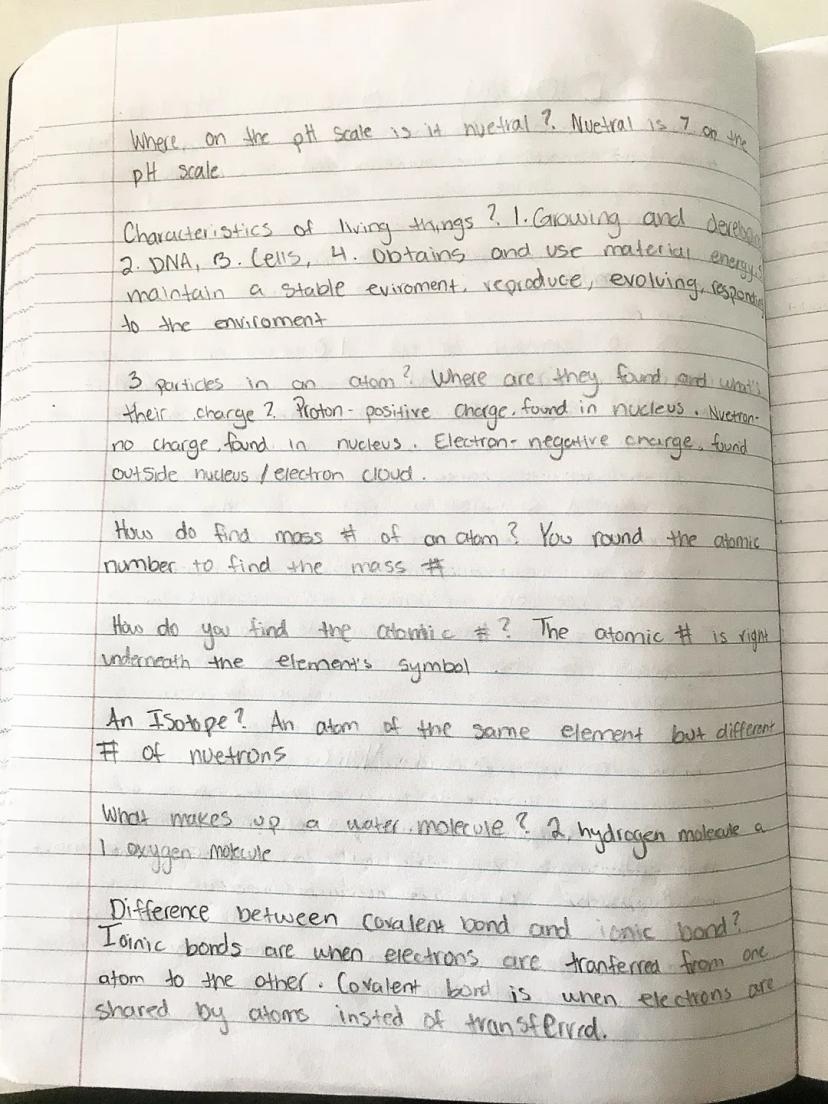 Where on the pH scale is it nuetral? Nuetral is 7 on the
pH scale.
Characteristics of living things? 1. Growing and
2. DNA, 3. Cells, 4. Obtains and use material energy,
maintain a stable eviroment, reproduce, evolving,
to the enviroment
3 particles in an atom? Where are they found and what's
their charge? Proton- positive charge, found in nucleus. Nuetron-
no charge, found in nucleus. Electron- negative charge, found
outside nucleus / electron cloud.
How do find mass # of an atom? You round the atomic
number to find the mass #
How do you find the atomic #? The atomic # is right
underneath the element's symbol
An Isotope? An atom of the same element but different
# of nuetrons
What makes up a water molecule? 2 hydrogen molecule a
1 oxygen molecule
Difference between covalent bond and ionic bond?
Ioinic bonds are when electrons are tranferred from one
atom to the other. Covalent bond is when electrons are
shared by atoms insted of transferred.